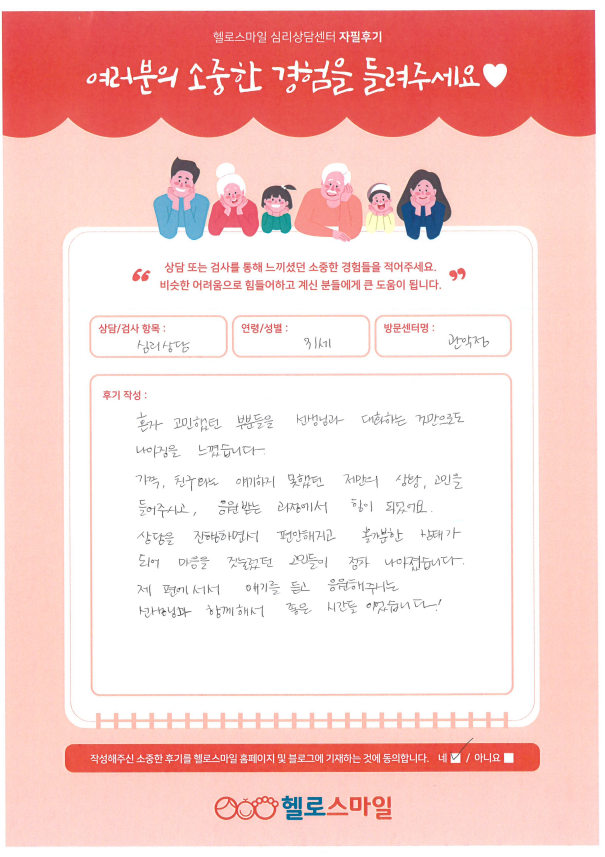 헬로스마일 심리상담센터 자필후기
여러분의 소중한 경험을 들려주세요♥
“ 상담 또는 검사를 통해 느끼셨던 소중한 경험들을 적어주세요. ”
비슷한 어려움으로 힘들어하고 계신 분들에게 큰 도움이 됩니다.
상담/검사 항목 : 심리상담
연령/성별 : 31세
방문센터명 : 관악점
후기 작성 :
혼자 고민했던 부분들을 선생님과 대화하는 것만으로도
나아짐을 느꼈습니다.
가족, 친구와는 얘기하지 못했던 저만의 상황, 고민을
들어주시고, 응원받는 과정에서 힘이 되었어요.
상담을 진행하면서 편안해지고 홀가분한 상태가
되어 마음을 짓눌렀던 고민들이 점차 나아졌습니다.
제 편에서서 얘기를 듣고 응원해주시는
선생님과 함께해서 좋은 시간들 이었습니다!
작성해주신 소중한 후기를 헬로스마일 홈페이지 및 블로그에 기재하는 것에 동의합니다. 네 ☑ / 아니요 ☐
헬로스마일